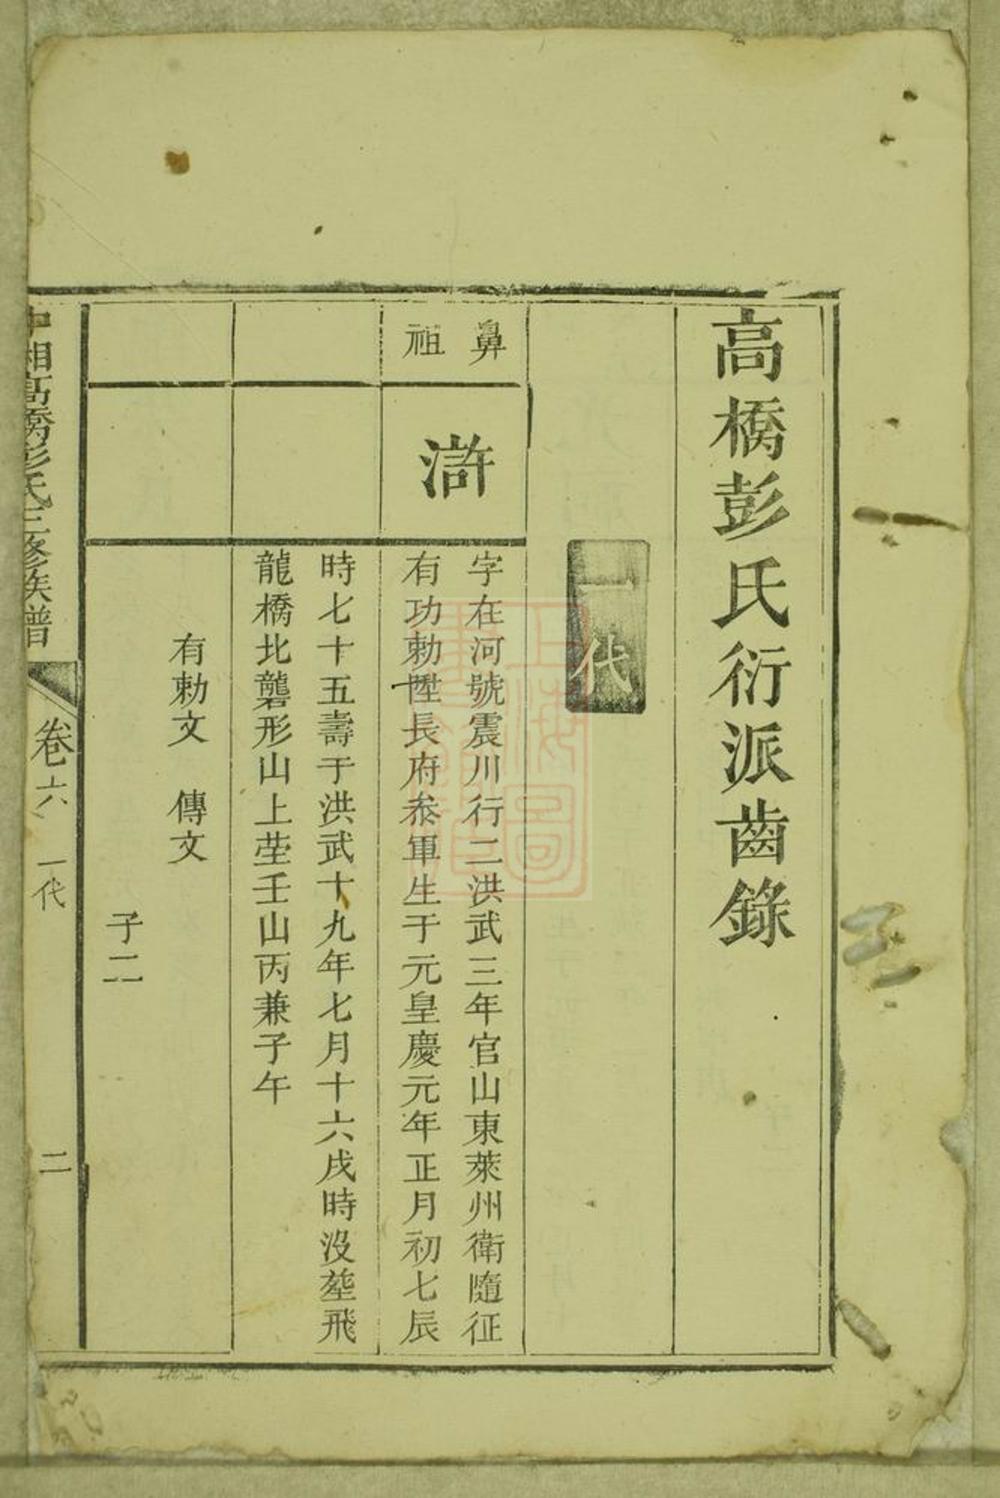 高橋彭氏衍派齒錄
一代
鼻祖
滸
字在河號震川行二洪武三年官山東萊州衛隨征
有功勅陞長府叅軍生于元皇慶元年正月初七辰
時七十五壽于洪武十九年七月十六戌時沒塟飛
龍橋北礱形山上塋壬山丙兼子午
有勅文　傳文
子二
中湘高橋彭氏三修族譜
卷六
一代
二
上海圖書館藏